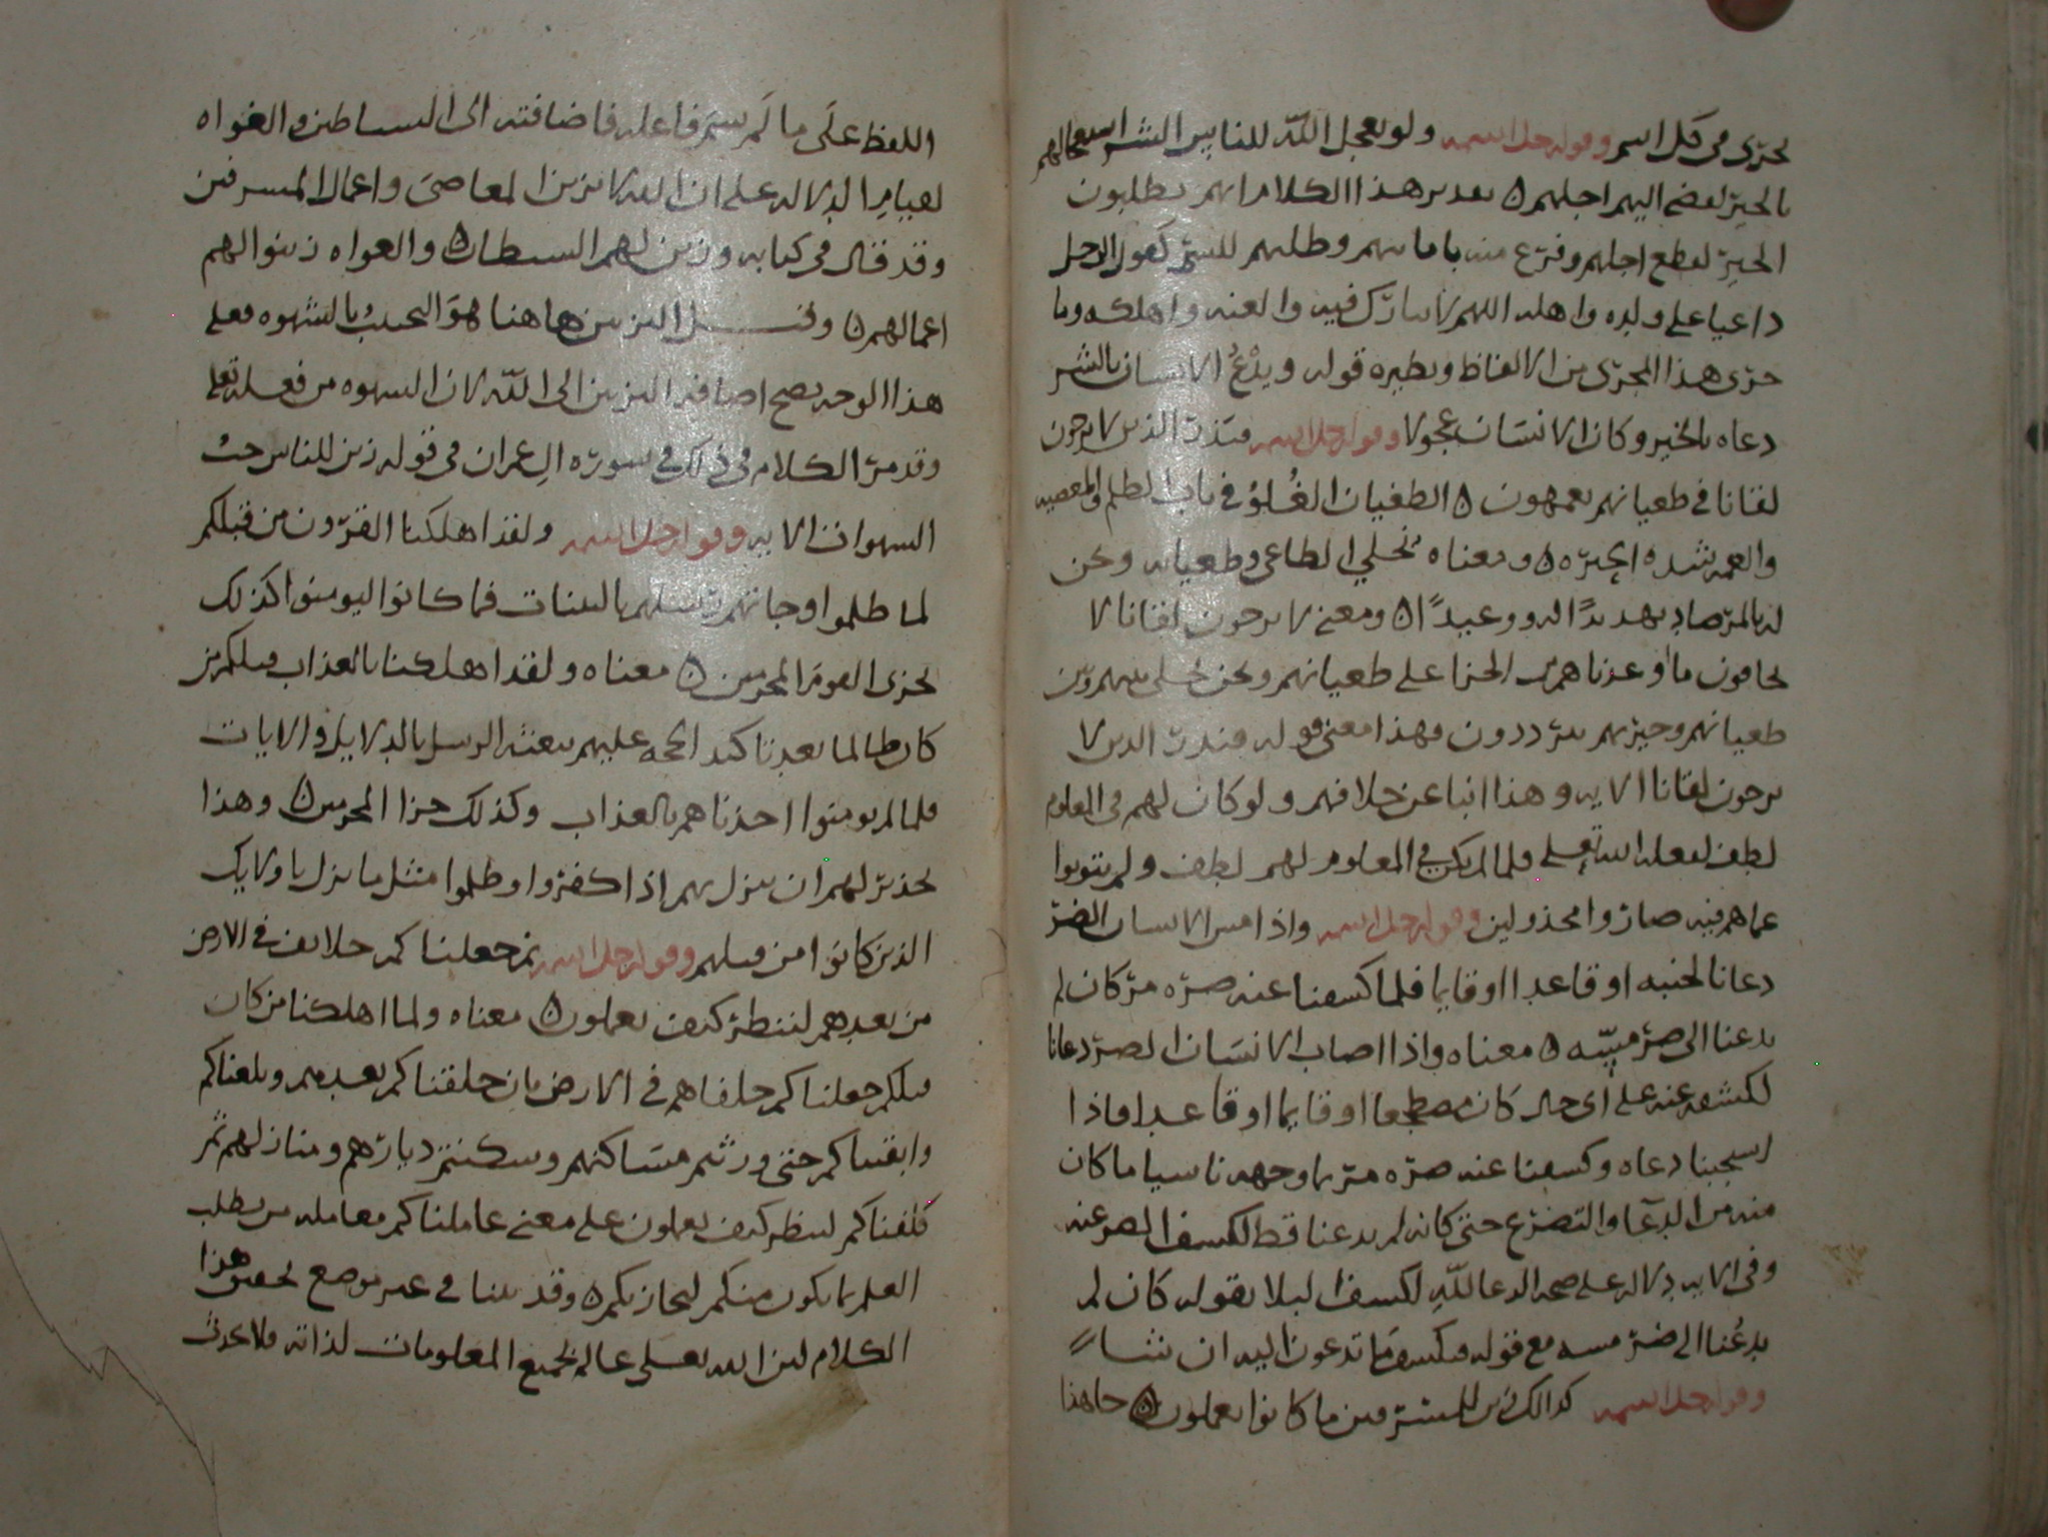 تجري من كل اسم وقوله جل اسمه ولو يعجل الله للناس الشر استعجالهم
بالخير لقضي اليهم اجلهم ٥ تقدير هذا الكلام انهم يطلبون
الخير لقطع اجلهم وفرغ منه باماتتهم وطلبهم للشر كقول الرجل
داعيا على ولده واهله اللهم لا تبارك فيه والعنه واهلكه وما
جرى هذا المجرى من الالفاظ ونظيره قوله ويدع الانسان بالشر
دعاه بالخير وكان الانسان عجولا وقوله جل اسمه فنذر الذين لا يرجون
لقانا في طغيانهم يعمهون ٥ الطغيان الغلو في باب الظلم والمعصيه
والعمه شده الحيره ٥ ومعناه نخلي الطاغي وطغيانه ونحن
له بالمرصاد تهديدا له ووعيدا ٥ ومعنى لا يرجون لقانا لا
يخافون ما اوعدناهم من الجزا على طغيانهم ونحن نخلي بينهم وبين
طغيانهم وحيرتهم يترددون وهذا معنى قوله فنذر الذين لا
يرجون لقانا الايه وهذا انبا عن خلافهم ولو كان لهم في المعلوم
لطف لفعله الله تعلى فلما لم يكن في المعلوم لهم لطف ولم يتوبوا
عما هم فيه صاروا مخذولين وقوله جل اسمه واذا مس الانسان الضر
دعانا لجنبه او قاعدا او قايما فلما كشفنا عنه ضره مر كان لم
يدعنا الى ضر مسه ٥ معناه واذا اصاب الانسان الضر دعانا
لكشفه عنه على اي حال كان مضطجعا او قايما او قاعدا فاذا
استجبنا دعاه وكشفنا عنه ضره مر بما وجهه ناسيا ما كان
منه من الدعا والتضرع حتى كانه لم يدعنا قط لكشف الضر عنه
وفي الايه دلاله على صحه الدعا لله لكشف البلا بقوله كان لم
يدعنا الى ضر مسه مع قوله فيكشف ما تدعون اليه ان شا
وقوله جل اسمه كذلك زين للمسرفين ما كانوا يعملون ٥ جا هذا
اللفظ على ما لم يسم فاعله فاضافته الى الشياطين والغواه
لقيام الدلاله على ان الله لا يزين المعاصي واعمال المسرفين
وقد قال في كتابه وزين لهم الشيطان والغواه زينوا لهم
اعمالهم ٥ وقيل التزيين هاهنا هو التحبيب بالشهوه فعلى
هذا الوجه يصح اضافه التزيين الى الله لان الشهوه من فعله تعلى
وقد مر الكلام في ذلك في سوره ال عمران في قوله زين للناس حب
الشهوات الايه وقوله جل اسمه ولقد اهلكنا القرون من قبلكم
لما ظلموا وجاتهم رسلهم بالبينات فما كانوا ليومنوا كذلك
نجزي القوم المجرمين ٥ معناه ولقد اهلكنا بالعذاب قبلكم من
كان ظالما بعد تاكيد الحجه عليهم ببعثه الرسل بالدلايل والايات
فلما لم يومنوا اخذناهم بالعذاب وكذلك جزا المجرمين ٥ وهذا
تحذير لهم ان ينزل بهم اذا كفروا وظلموا مثل ما نزل باولايك
الذين كانوا من قبلهم وقوله جل اسمه ثم جعلناكم خلايف في الارض
من بعدهم لننظر كيف تعملون ٥ معناه ولما اهلكنا من كان
قبلكم جعلناكم خلفاهم في الارض بان خلقناكم بعدهم وبلغناكم
وابقيناكم حتى ورثتم مساكنهم وسكنتم ديارهم ومنازلهم ثم
كلفناكم لننظر كيف تعملون على معنى عاملناكم معامله من يطلب
العلم بما يكون منكم ليجازيكم ٥ وقد بينا في غير موضع تحقيق هذا
الكلام لان الله تعلى عالم بجميع المعلومات لذاته فلا يحدث